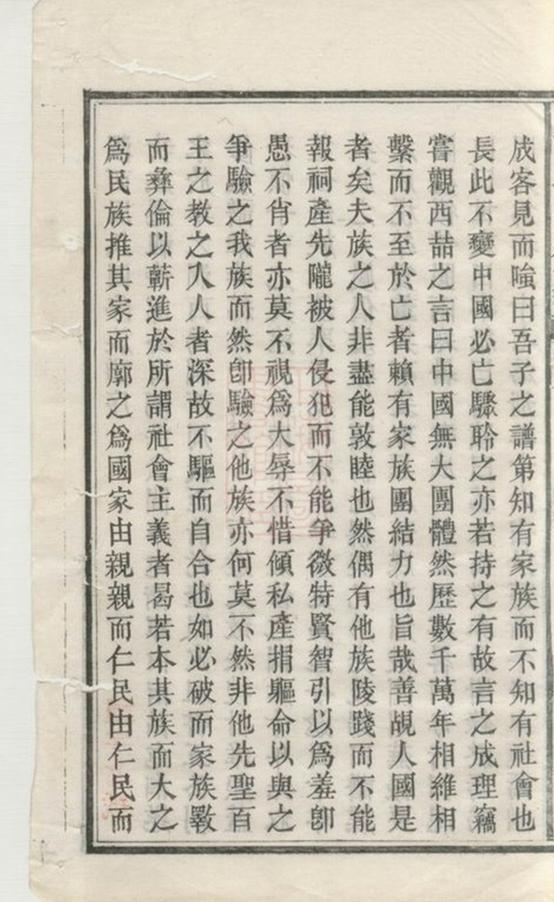 成客見而嗤曰吾子之譜第知有家族而不知有社會也
長此不變中國必亡驟聆之亦若持之有故言之成理竊
嘗觀西喆之言曰中國無大團體然歷數千萬年相維相
繫而不至於亡者賴有家族團結力也旨哉善覘人國是
者矣夫族之人非盡能敦睦也然偶有他族陵踐而不能
報祠產先隴被人侵犯而不能爭微特賢智引以為羞卽
愚不肖者亦莫不視為大辱不惜傾私產捐軀命以與之
爭驗之我族而然卽驗之他族亦何莫不然非他先聖百
王之教之入人者深故不驅而自合也如必破而家族斁
而彝倫以蘄進於所謂社會主義者曷若本其族而大之
為民族推其家而廓之為國家由親親而仁民由仁民而